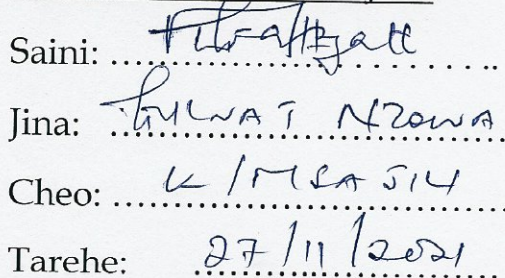 Saini:
Jina: NZOWA
Cheo: K/MSAJILI
Tarehe: 27/11/2021